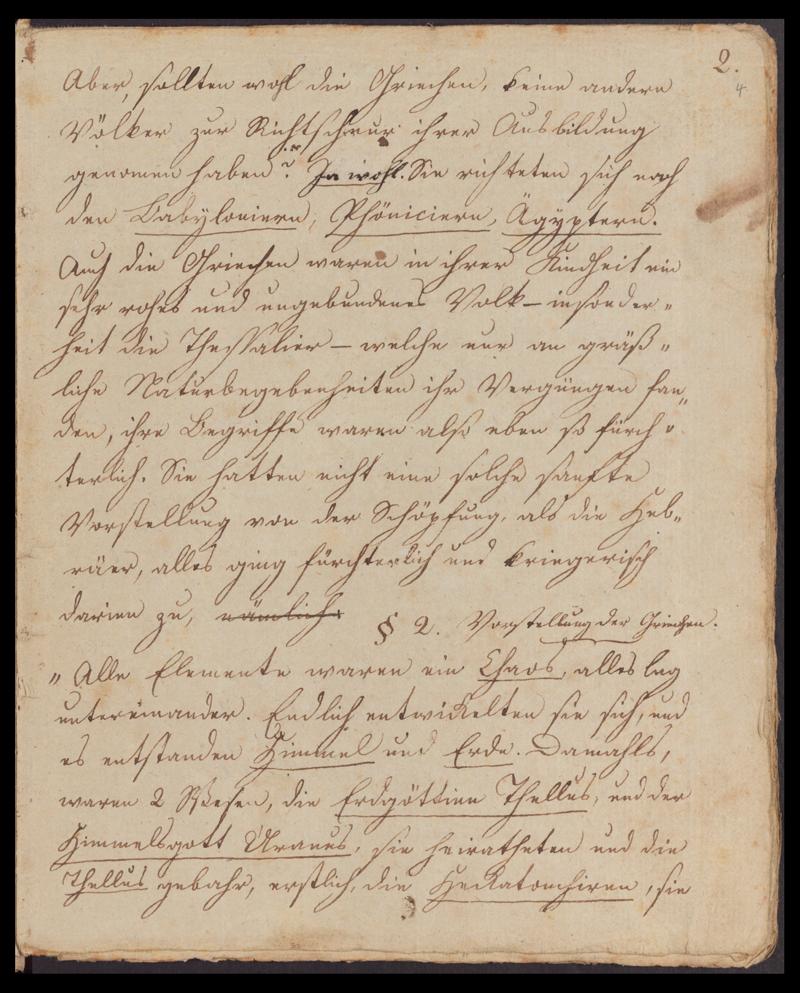 2.
4
Aber, sollten wohl die Griechen, keine andern
Völker zur Richtschnur ihrer Ausbildung
genomen haben? Ja wohl. Sie richteten sich nach
den Babyloniern, Phöniciern, Ägyptern.
Auch die Griechen waren in ihrer Kindheit ein
sehr rohes und ungebundenes Volk – insonder„
heit die Thessalier – welche nur an gräß„
liche Naturbegebenheiten ihr Vergnügen fan„
den, ihre Begriffe waren also eben so fürch„
terlich. Sie hatten nicht eine solche sanfte
Vorstellung von der Schöpfung, als die Heb„
räer, alles ging fürchterlich und kriegerisch
darien zu, nämlich:
§ 2. Vorstellung der Griechen.
„Alle Elemente waren ein Chaos, alles lag
untereinander. Endlich entwickelten sie sich, und
es entstanden Himmel und Erde. Damahls,
waren 2 Wesen, die Erdgöttinn Thellus, und der
Himmelsgott Uranus, sie heiratheten und die
Thellus gebahr, erstlich, die Heckatonchiren, sie